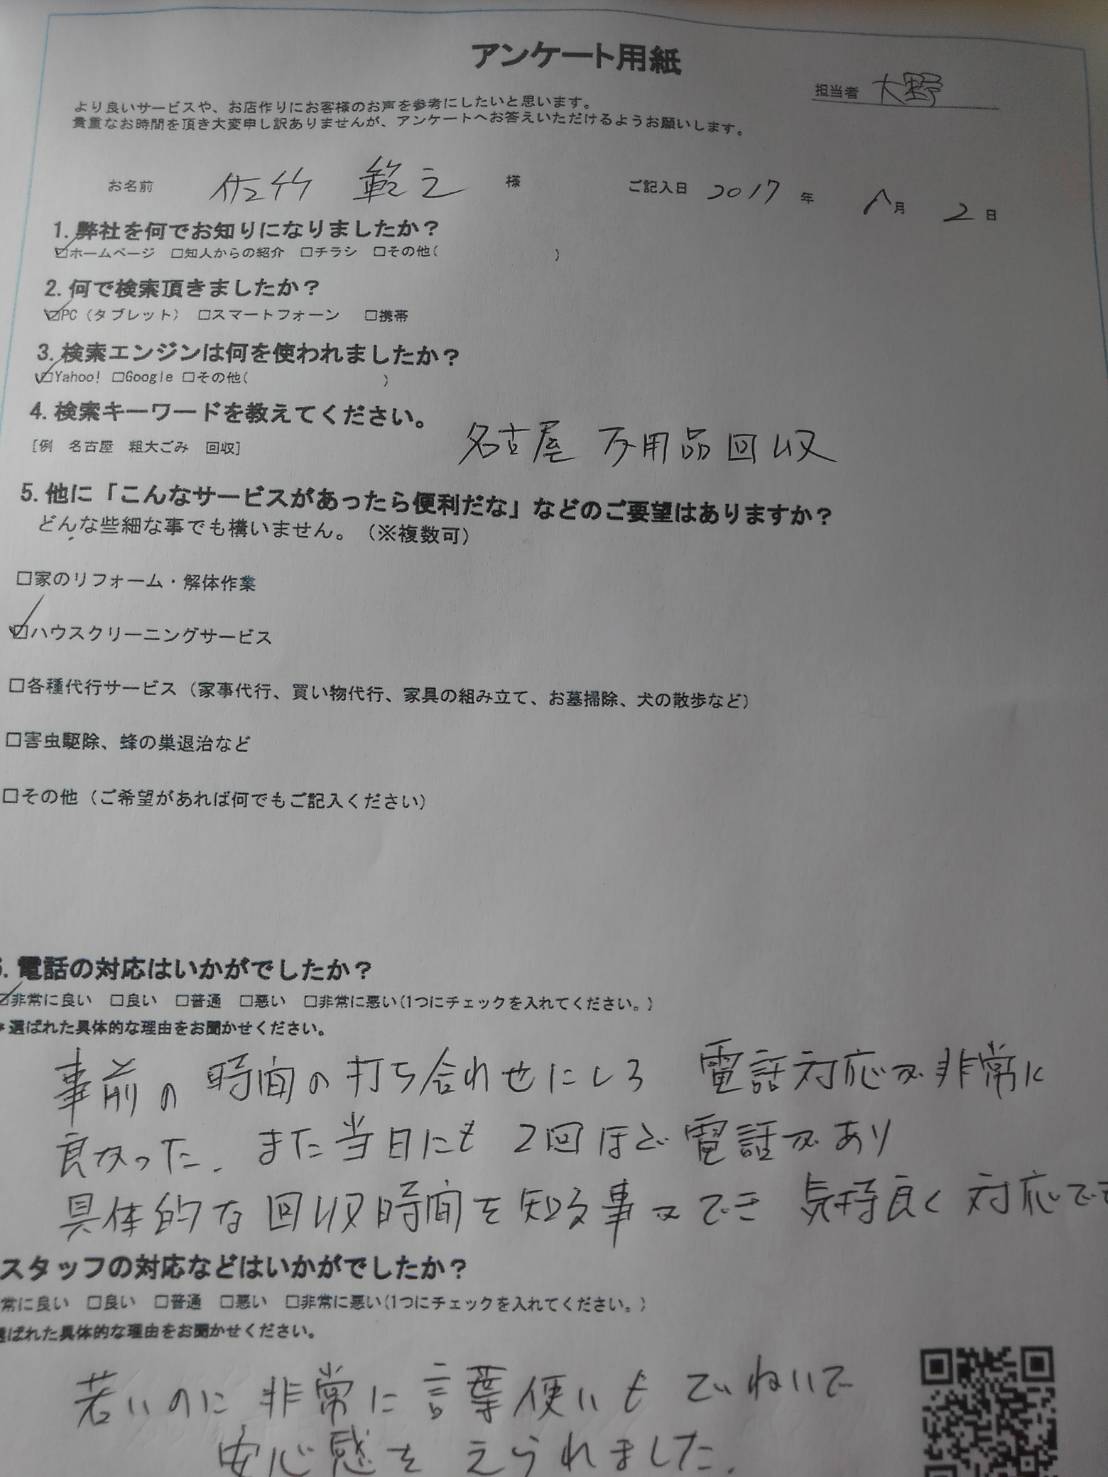 アンケート用紙
担当者 大野
より良いサービスや、お店作りにお客様のお声を参考にしたいと思います。
貴重なお時間を頂き大変申し訳ありませんが、アンケートへお答えいただけるようお願いします。
お名前 佐竹 範之 様 ご記入日 2017 年 月 2 日
1. 弊社を何でお知りになりましたか?
☑ホームページ □知人からの紹介 □チラシ □その他( )
2. 何で検索頂きましたか?
☑PC(タブレット) □スマートフォーン □携帯
3. 検索エンジンは何を使われましたか?
☑Yahoo! □Google □その他( )
4. 検索キーワードを教えてください。
[例 名古屋 粗大ごみ 回収] 名古屋 不用品回収
5. 他に「こんなサービスがあったら便利だな」などのご要望はありますか?
どんな些細な事でも構いません。(※複数可)
□家のリフォーム・解体作業
☑ハウスクリーニングサービス
□各種代行サービス(家事代行、買い物代行、家具の組み立て、お墓掃除、犬の散歩など)
□害虫駆除、蜂の巣退治など
□その他(ご希望があれば何でもご記入ください)
6. 電話の対応はいかがでしたか?
☑非常に良い □良い □普通 □悪い □非常に悪い(1つにチェックを入れてください。)
選ばれた具体的な理由をお聞かせください。
事前の時間の打ち合わせにしろ 電話対応が非常に
良かった。また当日にも2回ほど電話があり
具体的な回収時間を知る事ができ 気持良く対応でき
スタッフの対応などはいかがでしたか?
常に良い □良い □普通 □悪い □非常に悪い(1つにチェックを入れてください。)
選ばれた具体的な理由をお聞かせください。
若いのに非常に言葉使いもていねいで
安心感をえられました。